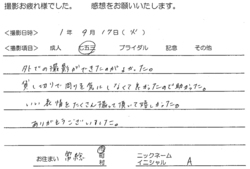 撮影お疲れ様でした。 感想をお願いいたします。
【撮影日時】 1年 9月 17日(火)
【撮影項目】 成人 七五三 ブライダル 記念 その他
外での撮影ができたのがよかった。
貸し切りで周りを気にしなくてよかったので助かった。
いい表情をたくさん撮って頂いて嬉しかった。
ありがとうございました。
お住まい 常総 市 村 ニックネーム イニシャル A